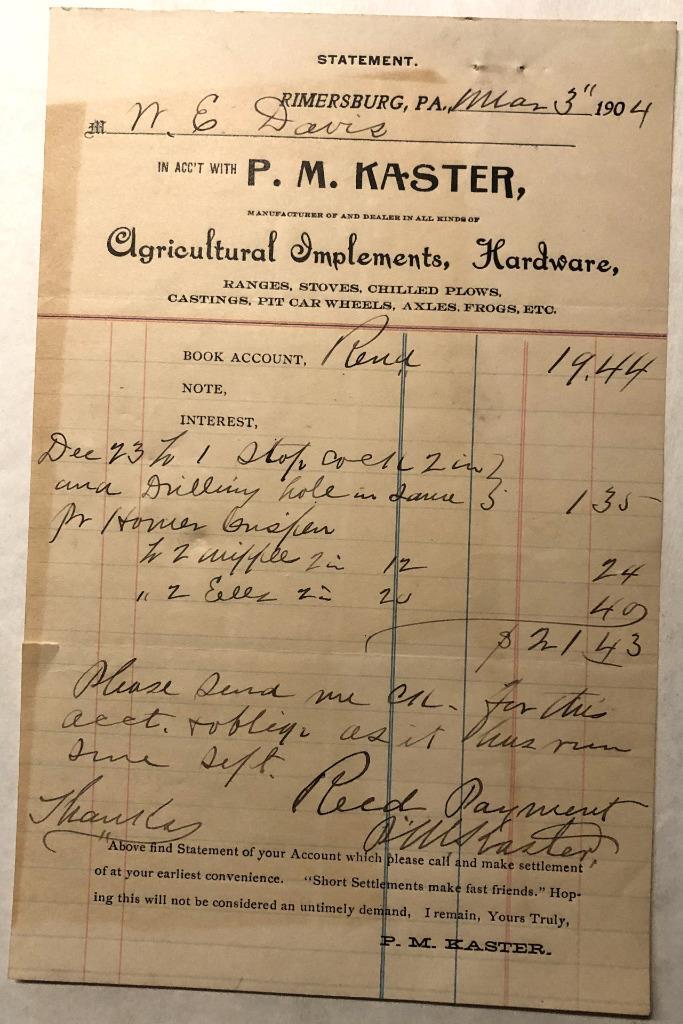 STATEMENT.
RIMERSBURG, PA. Mar 3" 1904
M W. E. Davis
IN ACC'T WITH P. M. KASTER,
MANUFACTURER OF AND DEALER IN ALL KINDS OF
Agricultural Implements, Hardware,
RANGES, STOVES, CHILLED PLOWS,
CASTINGS, PIT CAR WHEELS, AXLES, FROGS, ETC.
BOOK ACCOUNT, Rend 19.44
NOTE,
INTEREST,
Dec 23 to 1 Stop cock 2 in
and Drilling hole in same 1 35
pr Homer
to 2 nipple 2 in 12 24
" 2 Ells 2 in 20 40
$ 21 43
Please send me ck. for this
acct. & oblige as it has run
sine Sept.
Thanks Recd Payment
P M Kaster
"Above find Statement of your Account which please call and make settlement
of at your earliest convenience. "Short Settlements make fast friends." Hop-
ing this will not be considered an untimely demand, I remain, Yours Truly,
P. M. KASTER.